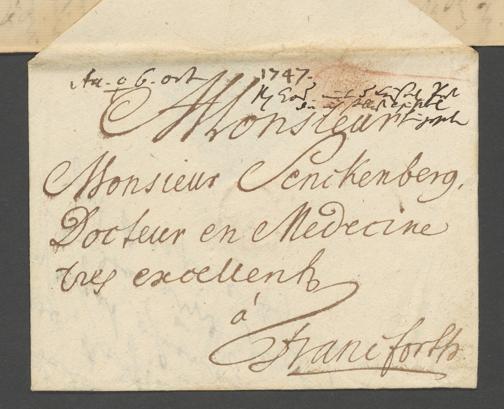 6. oct 1747.
Monsieur
Monsieur Senckenberg,
Docteur en Medecine
tres excellent
á
Francforth